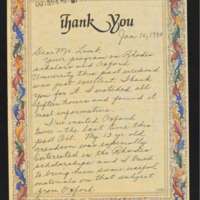 Thank You
Jan 10, 1980
Dear Mr. Lamb,
Your program on Rhodes
scholars and Oxford
University this past weekend
was just excellent. Thank
you for it. I watched all
fifteen hours and found it
most informative.
I've visited Oxford
twice - the last time this
past Oct. My 13 yr old
grandson was especially
interested in the Rhodes
scholarships and I tried
to bring him some useful
materials on that subject
from Oxford.